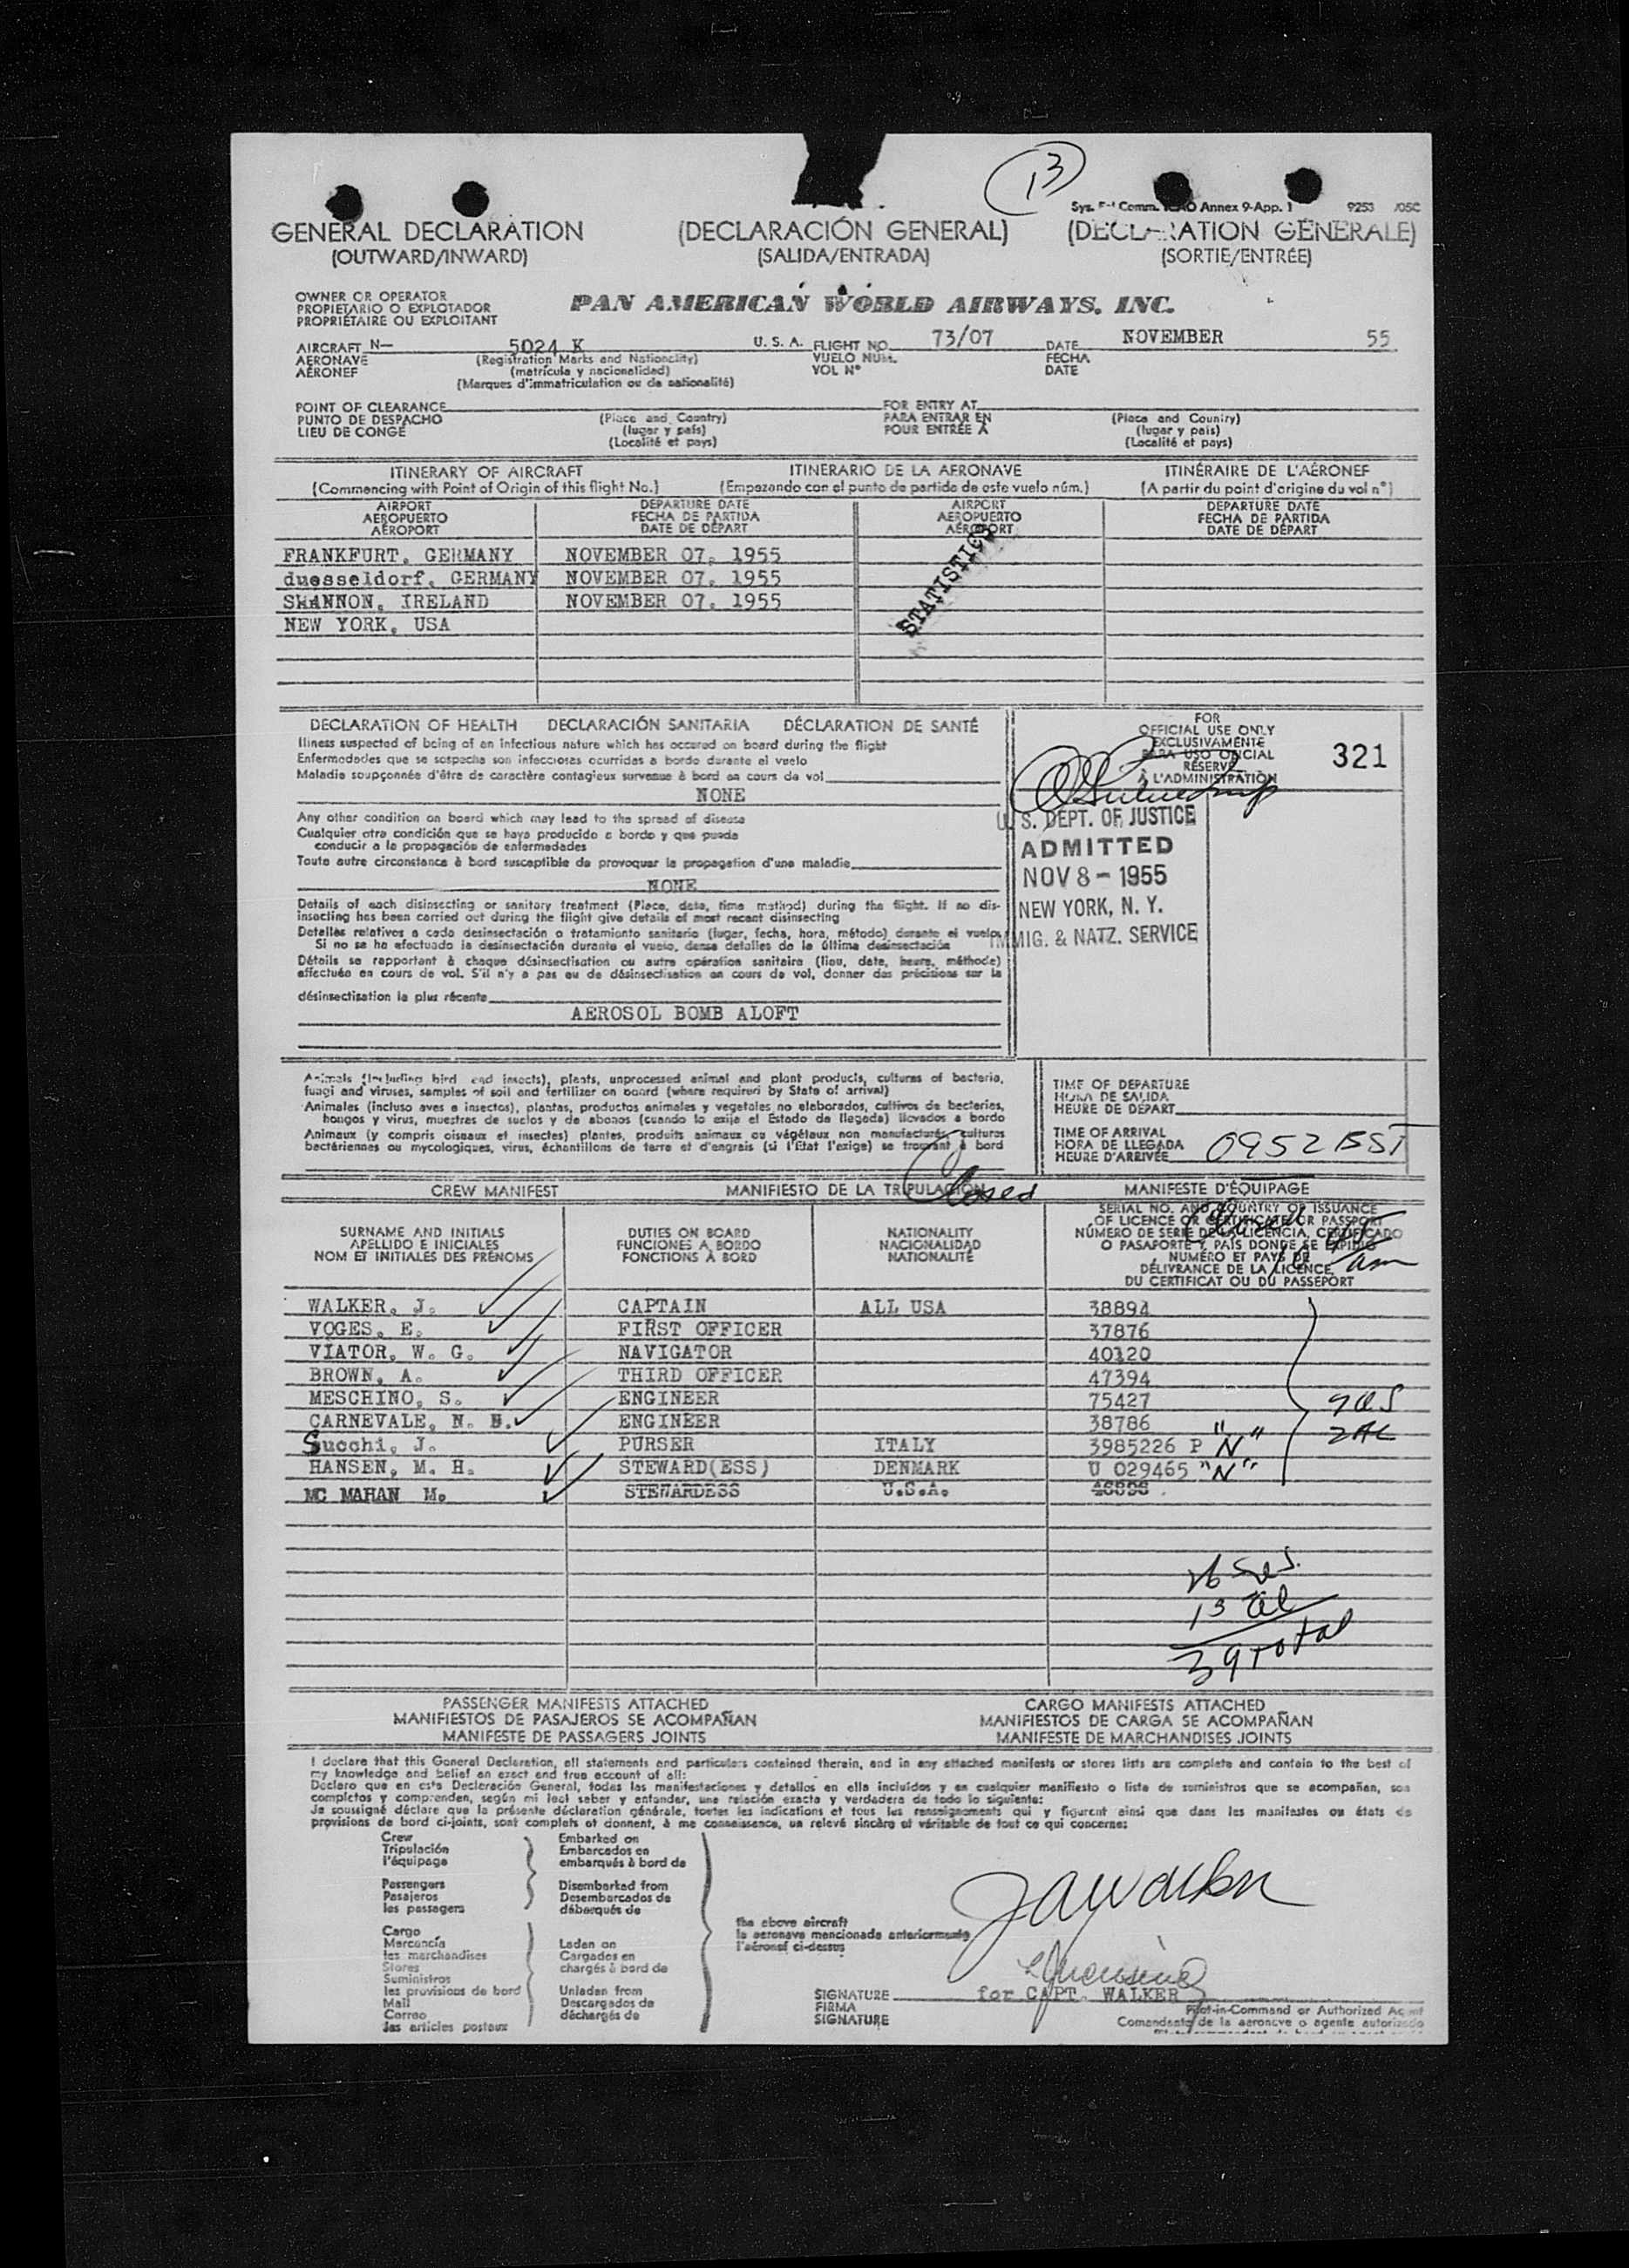 13
Annex 9-App. 1 9253 /05C
GENERAL DECLARATION (DECLARACIÓN GENERAL) (DECLARATION GÉNÉRALE)
(OUTWARD/INWARD) (SALIDA/ENTRADA) (SORTIE/ENTRÉE)
OWNER OR OPERATOR
PROPIETARIO O EXPLOTADOR
PROPRIÉTAIRE OU EXPLOITANT
PAN AMERICAN WORLD AIRWAYS, INC.
AIRCRAFT N— 5024 K U. S. A. FLIGHT NO. 73/07 DATE NOVEMBER 55
AERONAVE (Registration Marks and Nationality) VUELO NÚM. FECHA
AÉRONEF (matrícula y nacionalidad) VOL N° DATE
(Marques d'immatriculation ou de nationalité)
POINT OF CLEARANCE FOR ENTRY AT
PUNTO DE DESPACHO (Place and Country) PARA ENTRAR EN (Place and Country)
LIEU DE CONGÉ (lugar y país) POUR ENTRÉE À (lugar y país)
(Localité et pays) (Localité et pays)
ITINERARY OF AIRCRAFT ITINERARIO DE LA AERONAVE ITINÉRAIRE DE L'AÉRONEF
(Commencing with Point of Origin of this flight No.) (Empezando con el punto de partida de este vuelo núm.) (A partir du point d'origine du vol n°)
AIRPORT DEPARTURE DATE AIRPORT DEPARTURE DATE
AEROPUERTO FECHA DE PARTIDA AEROPUERTO FECHA DE PARTIDA
AÉROPORT DATE DE DÉPART AÉROPORT DATE DE DÉPART
STATISTICS
FRANKFURT, GERMANY NOVEMBER 07, 1955
duesseldorf, GERMANY NOVEMBER 07, 1955
SHANNON, IRELAND NOVEMBER 07, 1955
NEW YORK, USA
DECLARATION OF HEALTH DECLARACIÓN SANITARIA DÉCLARATION DE SANTÉ
Illness suspected of being of an infectious nature which has occured on board during the flight
Enfermedades que se sospecha son infecciosas ocurridas a bordo durante el vuelo
Maladie soupçonnée d'être de caractère contagieux survenue à bord en cours de vol
NONE
Any other condition on board which may lead to the spread of disease
Cualquier otra condición que se haya producido a bordo y que pueda
conducir a la propagación de enfermedades
Toute autre circonstance à bord susceptible de provoquer la propagation d'une maladie
NONE
Details of each disinsecting or sanitary treatment (Place, date, time method) during the flight. If no dis-
insecting has been carried out during the flight give details of most recent disinsecting
Detalles relativos a cada desinsectación o tratamiento sanitario (lugar, fecha, hora, método) durante el vuelo.
Si no se ha efectuado la desinsectación durante el vuelo, dense detalles de la última desinsectación
Détails se rapportant à chaque désinsectisation ou autre opération sanitaire (lieu, date, heure, méthode)
effectuée en cours de vol. S'il n'y a pas eu de désinsectisation en cours de vol, donner des précisions sur la
désinsectisation la plus récente
AEROSOL BOMB ALOFT
FOR
OFFICIAL USE ONLY
EXCLUSIVAMENTE
PARA USO OFICIAL
RÉSERVÉ
À L'ADMINISTRATION
321
U. S. DEPT. OF JUSTICE
ADMITTED
NOV 8 - 1955
NEW YORK, N. Y.
IMMIG. & NATZ. SERVICE
Animals (including bird and insects), plants, unprocessed animal and plant products, cultures of bacteria,
fungi and viruses, samples of soil and fertilizer on board (where required by State of arrival)
Animales (incluso aves e insectos), plantas, productos animales y vegetales no elaborados, cultivos de bacterias,
hongos y virus, muestras de suelos y de abonos (cuando lo exije el Estado de llegada) llevados a bordo
Animaux (y compris oiseaux et insectes) plantes, produits animaux ou végétaux non manufacturés, cultures
bactériennes ou mycologiques, virus, échantillons de terre et d'engrais (si l'Etat l'exige) se trouvant à bord
TIME OF DEPARTURE
HORA DE SALIDA
HEURE DE DÉPART
TIME OF ARRIVAL
HORA DE LLEGADA
HEURE D'ARRIVÉE 0952 EST
Closed
CREW MANIFEST MANIFIESTO DE LA TRIPULACIÓN MANIFESTE D'ÉQUIPAGE
SURNAME AND INITIALS DUTIES ON BOARD NATIONALITY
APELLIDO E INICIALES FUNCIONES A BORDO NACIONALIDAD
NOM ET INITIALES DES PRÉNOMS FONCTIONS À BORD NATIONALITÉ
SERIAL NO. AND COUNTRY OF ISSUANCE
OF LICENCE OR CERTIFICATE OR PASSPORT
NÚMERO DE SERIE DE LA LICENCIA, CERTIFICADO
O PASAPORTE Y PAÍS DONDE SE EXPIDIÓ
NUMÉRO ET PAYS DE
DÉLIVRANCE DE LA LICENCE,
DU CERTIFICAT OU DU PASSEPORT
Closed
am
WALKER, J. CAPTAIN ALL USA 38894
VOGES, E. FIRST OFFICER 37876
VIATOR, W. G. NAVIGATOR 40120
BROWN, A. THIRD OFFICER 47394
MESCHINO, S. ENGINEER 75427
CARNEVALE, N. ENGINEER 38786
Succhi, J. PURSER ITALY 3985226 P "N"
HANSEN, M. H. STEWARD(ESS) DENMARK U 029465 "N"
MC MAHAN M. STEWARDESS U.S.A.
39 total
PASSENGER MANIFESTS ATTACHED CARGO MANIFESTS ATTACHED
MANIFIESTOS DE PASAJEROS SE ACOMPAÑAN MANIFIESTOS DE CARGA SE ACOMPAÑAN
MANIFESTE DE PASSAGERS JOINTS MANIFESTE DE MARCHANDISES JOINTS
I declare that this General Declaration, all statements and particulars contained therein, and in any attached manifests or stores lists are complete and contain to the best of
my knowledge and belief an exact and true account of all:
Declaro que en esta Declaración General, todas las manifestaciones y detalles en ella incluidos y en cualquier manifiesto o lista de suministros que se acompañan, son
completos y comprenden, según mi leal saber y entender, una relación exacta y verdadera de todo lo siguiente:
Je soussigné déclare que la présente déclaration générale, toutes les indications et tous les renseignements qui y figurent ainsi que dans les manifestes ou états de
provisions de bord ci-joints, sont complets et donnent, à ma connaissance, un relevé sincère et véritable de tout ce qui concerne:
Crew Embarked on
Tripulación Embarcados en
l'équipage embarqués à bord de
Passengers Disembarked from
Pasajeros Desembarcados de
les passagers débarqués de
the above aircraft
la aeronave mencionada anteriormente
l'aéronef ci-dessus
Cargo
Mercancía Laden on
les marchandises Cargados en
Stores chargés à bord de
Suministros
les provisions de bord Unladen from
Mail Descargados de
Correo déchargés de
les articles postaux
JAWalker
SIGNATURE for CAPT. WALKER
FIRMA Pilot-in-Command or Authorized Agent
SIGNATURE Comandante de la aeronave o agente autorizado